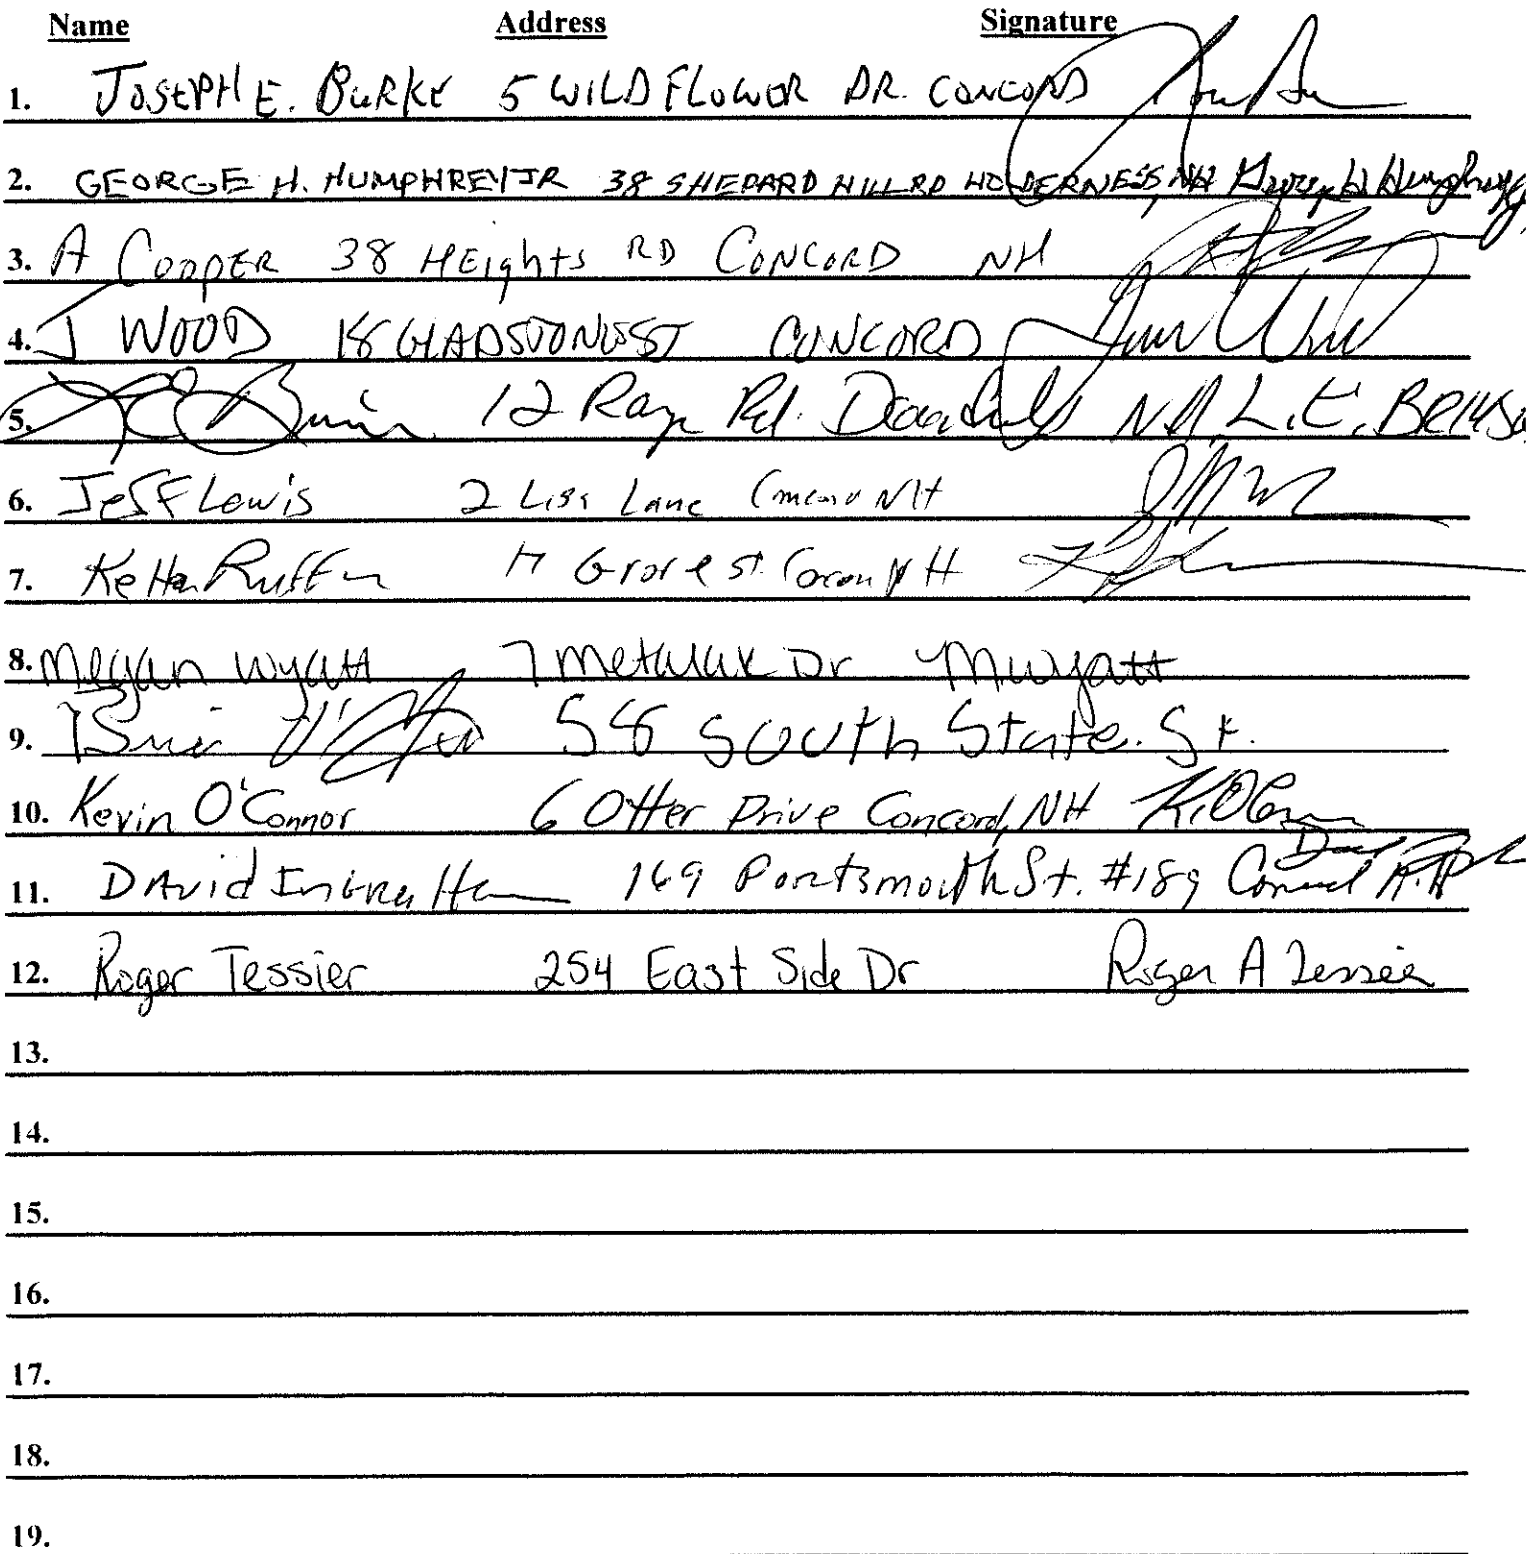 Name Address Signature
1. JOSEPH E. BURKE 5 WILDFLOWER DR. CONCORD
2. GEORGE H. HUMPHREY JR 38 SHEPARD HILL RD HOLDERNESS, NH George H Humphrey Jr.
3. A COOPER 38 HEIghts RD CONCORD NH
4. J WOOD 18 GLADSTONE ST CONCORD
5. 12 Rd. N.H. L.E.
6. Jeff Lewis 2 Lisa Lane NH
7. Ruffin Grove St. NH
8. Megan Wyatt 7 Metalak Dr MWyatt
9. 58 South State. St.
10. Kevin O'Connor 6 Otter Drive Concord, NH K. O'Connor
11. David 169 Portsmouth St. #189 Concord
12. Roger Tessier 254 East Side Dr Roger A Tessier
13.
14.
15.
16.
17.
18.
19.